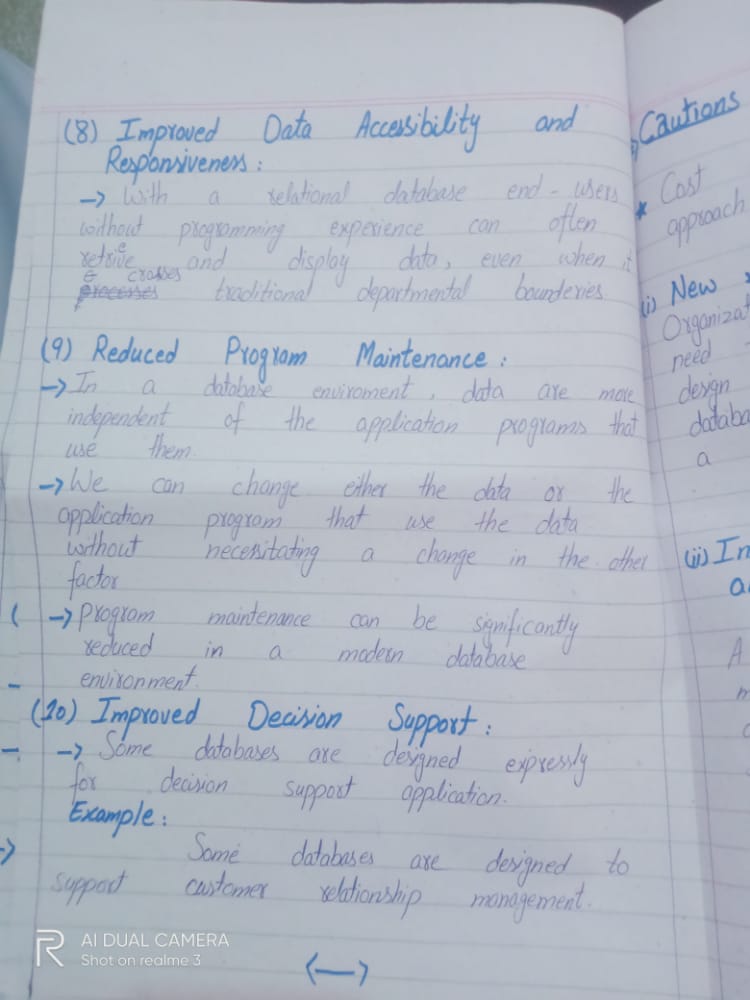 (8) Improved Data Accessibility and
Responsiveness :
→ With a relational database end-users
without programming experience can often
retrieve and display data, even when it
crosses traditional departmental bounderies.
(9) Reduced Program Maintenance :
→ In a database enviroment, data are more
independent of the application programs that
use them.
→ We can change either the data or the
application program that use the data
without necessitating a change in the other
factor
→ Program maintenance can be significantly
reduced in a modern database
environment.
(10) Improved Decision Support :
→ Some databases are designed expressly
for decision support application.
Example :
Some databases are designed to
support customer relationship management.
Cautions
* Cost
approach
(i) New
need
design
a
(ii)
A
AI DUAL CAMERA
Shot on realme 3